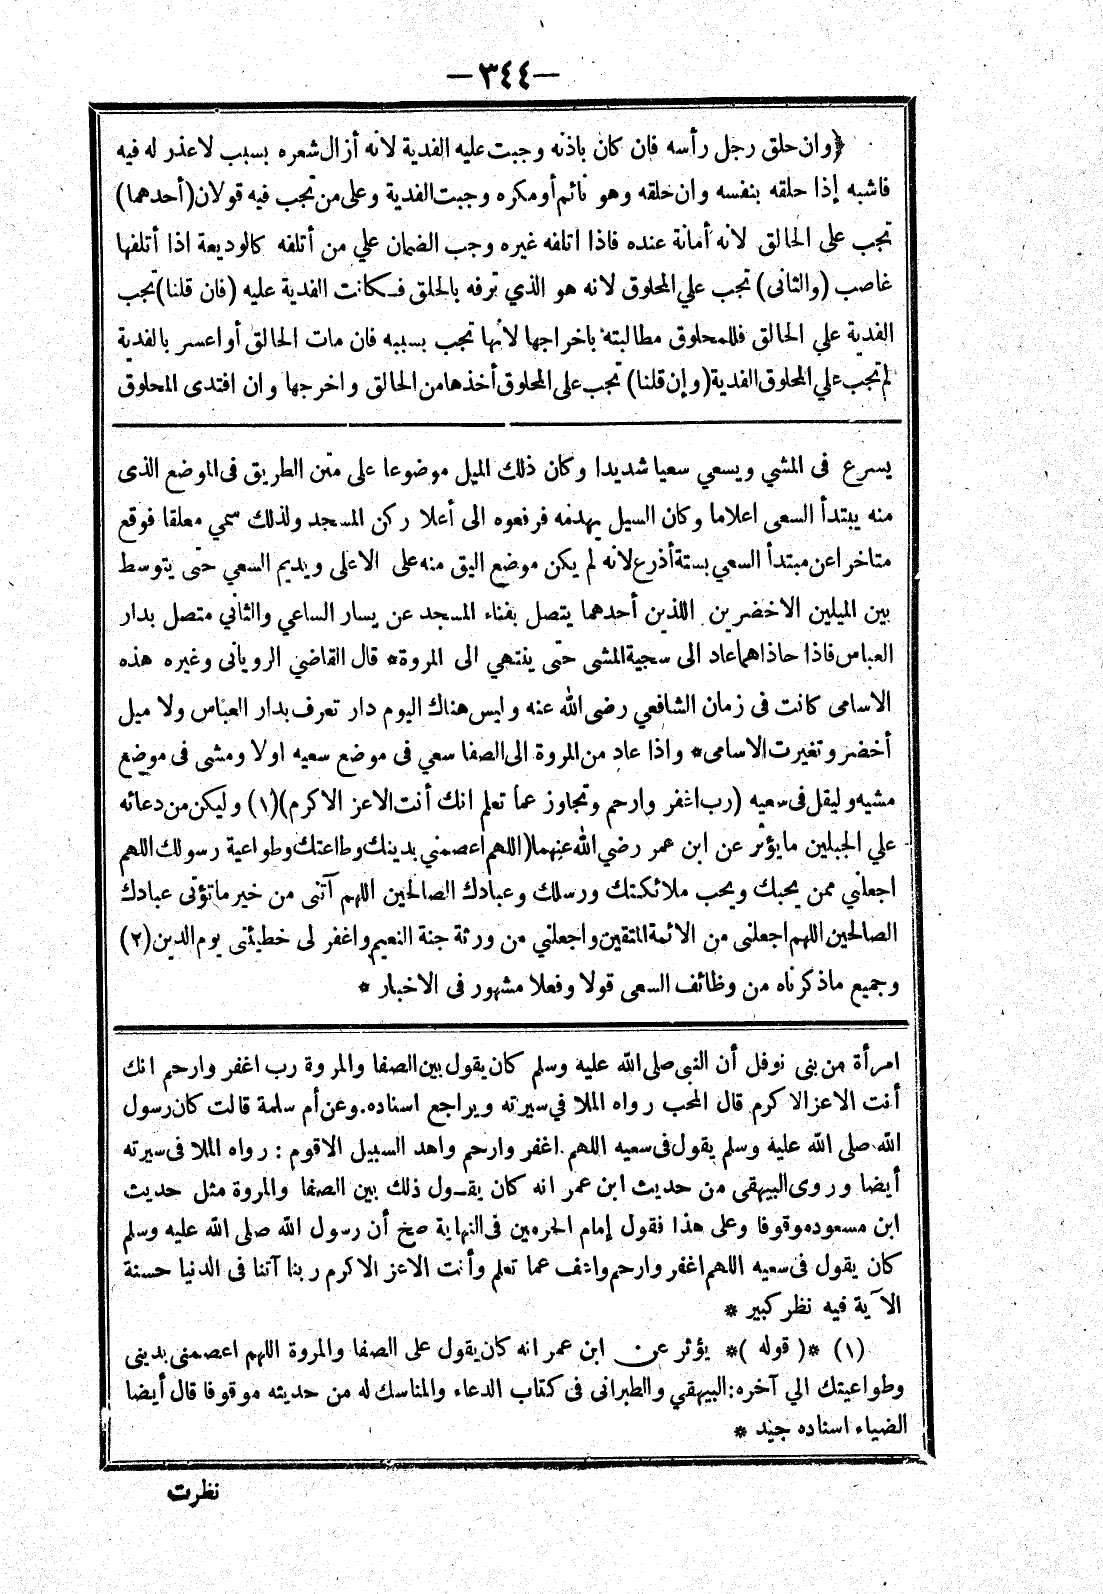 —٣٤٤—
﴿وان حلق رجل رأسه فان كان باذنه وجبت عليه الفدية لانه أزال شعره بسبب لاعذر له فيه
فاشبه إذا حلقه بنفسه وان حلقه وهو نائم أو مكره وجبت الفدية وعلى من تجب فيه قولان (أحدهما)
تجب على الحالق لانه أمانة عنده فاذا اتلفه غيره وجب الضمان علي من أتلفه كالوديعة اذا أتلفها
غاصب (والثانى) تجب علي المحلوق لانه هو الذي ترفه بالحلق فكانت الفدية عليه (فان قلنا) تجب
الفدية علي الحالق فللمحلوق مطالبته باخراجها لانها تجب بسببه فان مات الحالق أو اعسر بالفدية
لم تجب علي المحلوق الفدية (وإن قلنا) تجب على المحلوق أخذها من الحالق واخرجها وان افتدى المحلوق
يسرع فى المشي ويسعي سعيا شديدا وكان ذلك الميل موضوعا على متن الطريق فى الموضع الذى
منه يبتدأ السعى اعلاما وكان السيل يهدمه فرفعوه الى أعلا ركن المسجد ولذلك سمي معلقا فوقع
متاخرا عن مبتدأ السعي بستة أذرع لانه لم يكن موضع اليق منه على الاعلى ويديم السعي حتى يتوسط
بين الميلين الاخضرين اللذين أحدهما يتصل بفناء المسجد عن يسار الساعي والثاني متصل بدار
العباس فاذا حاذاهما عاد الى سجية المشى حتى ينتهي الى المروة* قال القاضي الرويانى وغيره هذه
الاسامى كانت فى زمان الشافعي رضى الله عنه وليس هناك اليوم دار تعرف بدار العباس ولا ميل
أخضر وتغيرت الاسامى* واذا عاد من المروة الى الصفا سعي فى موضع سعيه اولا ومشى فى موضع
مشيه وليقل فى سعيه (رب اغفر وارحم وتجاوز عما تعلم انك أنت الاعز الاكرم) (١) وليكن من دعائه
علي الجبلين مايؤثر عن ابن عمر رضي الله عنهما (اللهم اعصمني بدينك وطاعتك وطواعية رسولك اللهم
اجعلني ممن يحبك ويحب ملائكتك ورسلك وعبادك الصالحين اللهم آتنى من خير ماتؤتى عبادك
الصالحين اللهم اجعلنى من الائمة المتقين واجعلني من ورثة جنة النعيم واغفر لى خطيئتى يوم الدين (٢)
وجميع ماذكرناه من وظائف السعى قولا وفعلا مشهور فى الاخبار *
امرأة من بنى نوفل أن النبى صلى الله عليه وسلم كان يقول بين الصفا والمروة رب اغفر وارحم انك
أنت الاعز الاكرم قال المحب رواه الملا في سيرته ويراجع اسناده. وعن أم سلمة قالت كان رسول
الله صلى الله عليه وسلم يقول فى سعيه اللهم اغفر وارحم واهد السبيل الاقوم : رواه الملا فى سيرته
أيضا وروى البيهقى من حديث ابن عمر انه كان يقول ذلك بين الصفا والمروة مثل حديث
ابن مسعود موقوفا وعلى هذا فقول إمام الحرمين فى النهاية صح أن رسول الله صلى الله عليه وسلم
كان يقول فى سعيه اللهم اغفر وارحم واعف عما تعلم وأنت الاعز الاكرم ربنا آتنا فى الدنيا حسنة
الآية فيه نظر كبير *
(١) *( قوله )* يؤثر عن ابن عمر انه كان يقول على الصفا والمروة اللهم اعصمنى بدينى
وطواعيتك الي آخره: البيهقي والطبرانى فى كتاب الدعاء والمناسك له من حديثه موقوفا قال أيضا
الضياء اسناده جيد *
نظرت